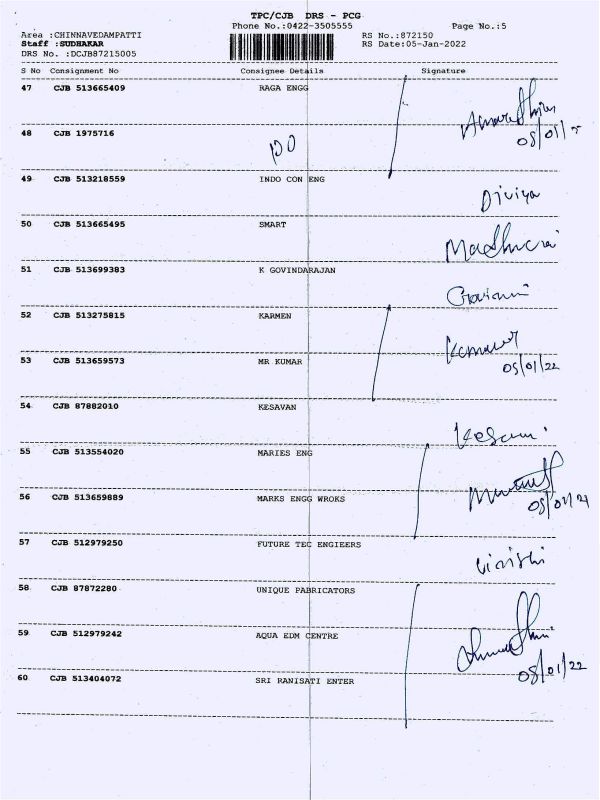 TPC/CJB DRS - PCG
Phone No.:0422-3505555 Page No.:5
Area :CHINNAVEDAMPATTI RS No.:872150
Staff :SUDHAKAR RS Date:05-Jan-2022
DRS No. :DCJB87215005
S No Consignment No Consignee Details Signature
47 CJB 513665409 RAGA ENGG
48 CJB 1975716
49 CJB 513218559 INDO CON ENG
Diviya
50 CJB 513665495 SMART
51 CJB 513699383 K GOVINDARAJAN
52 CJB 513275815 KARMEN
53 CJB 513659573 MR KUMAR
05/01/22
54 CJB 87882010 KESAVAN
55 CJB 513554020 MARIES ENG
56 CJB 513659889 MARKS ENGG WROKS
57 CJB 512979250 FUTURE TEC ENGIEERS
58 CJB 87872280 UNIQUE PABRICATORS
59 CJB 512979242 AQUA EDM CENTRE
05/01/22
60 CJB 513404072 SRI RANISATI ENTER